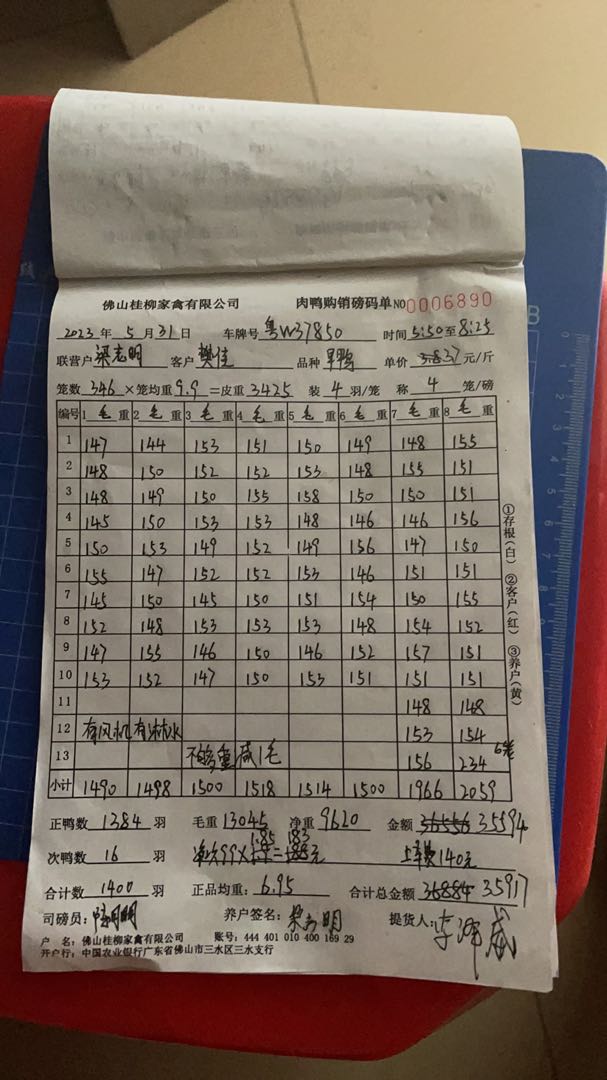 佛山桂柳家禽有限公司 肉鸭购销磅码单 NO 0006890
2023 年 5 月 31 日 车牌号 粤W37850 时间 5:50 至 8:25
联营户 梁志明 客户 樊佳 品种 旱鸭 单价 3.7 元/斤
笼数 346 ×笼均重 9.9 =皮重 3425 装 4 羽/笼 称 4 笼/磅
编号 1 毛 重 2 毛 重 3 毛 重 4 毛 重 5 毛 重 6 毛 重 7 毛 重 8 毛 重
1 147 144 153 151 150 149 148 155
2 148 150 152 152 153 148 155 151
3 148 149 150 155 158 150 150 151
4 145 150 153 153 148 146 146 156
5 150 153 149 152 149 156 147 150
6 155 147 152 152 153 146 151 151
7 145 150 145 150 151 154 150 155
8 152 148 153 153 153 148 154 152
9 147 155 146 150 146 152 157 151
10 153 152 147 150 153 151 151 151
11 148 148
12 有风机 有淋水 153 154
13 不够重减1毛 156 234 6笼
小计 1490 1498 1500 1518 1514 1500 1966 2059
①存根(白) ②客户(红) ③养户(黄)
正鸭数 1384 羽 毛重 13045 净重 9620 金额 36556 35594
次鸭数 16 羽 净次99× 1.85 = 183 元 上车费140元
合计数 1400 羽 正品均重: 6.95 合计总金额 36884 35917
司磅员: 养户签名: 梁志明 提货人:
户 名:佛山桂柳家禽有限公司 账号:444 401 010 400 169 29
开户行:中国农业银行广东省佛山市三水区三水支行